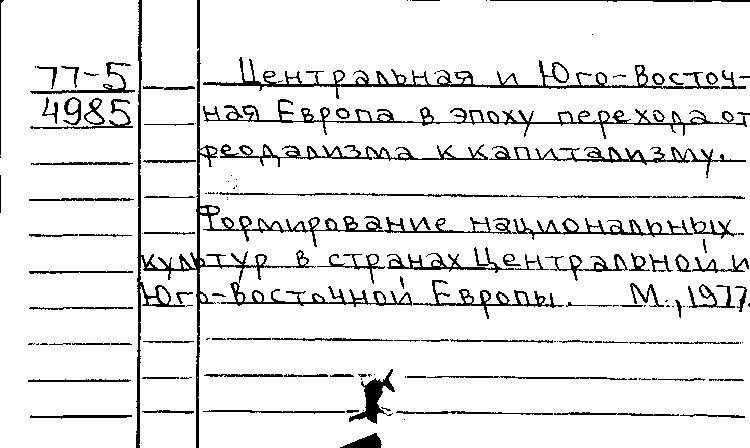 77-5 Центральная и Юго-Восточ-
4985 ная Европа в эпоху перехода от
феодализма к капитализму.
Формирование национальных
культур в странах Центральной и
Юго-Восточной Европы. М., 1977.